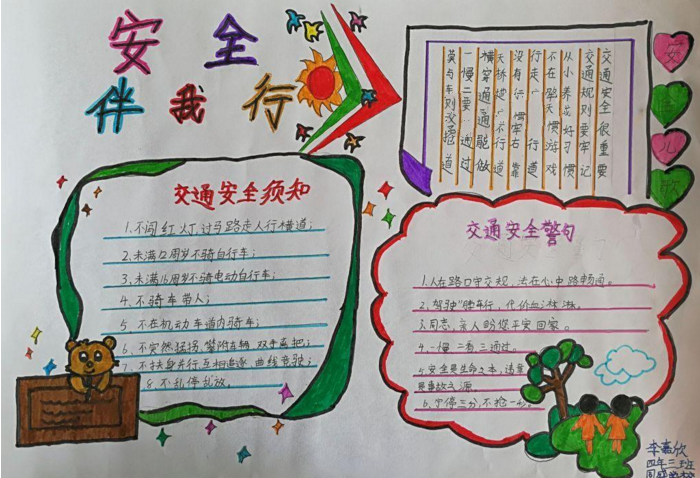 安全
伴我行
交通安全须知
1.不闯红灯,过马路走人行横道;
2.未满12周岁不骑自行车;
3.未满16周岁不骑电动自行车;
4.不骑车带人;
5.不在机动车道内骑车;
6.不突然猛拐,攀附车辆,双手离把;
7.不扶身并行互相追逐,曲线竞驶;
8.不乱停乱放。
安全儿歌
交通安全很重要
交通规则要牢记
从小养成好习惯
不在路天惯游戏
行走广行道
没有行惯牢右靠
天桥地广不行道
横穿通通能做
一慢二要通过
莫与车则没抢道
交通安全警句
1.人在路口守交规,法在心中路畅通。
2.驾驶"睡车行,代价血淋淋。
3.同志,亲人盼您平安回家。
4.一慢二看三通过。
5.安全是生命之本,违章
是事故之源。
6.宁停三分,不抢一秒。
李嘉欣
四年三班